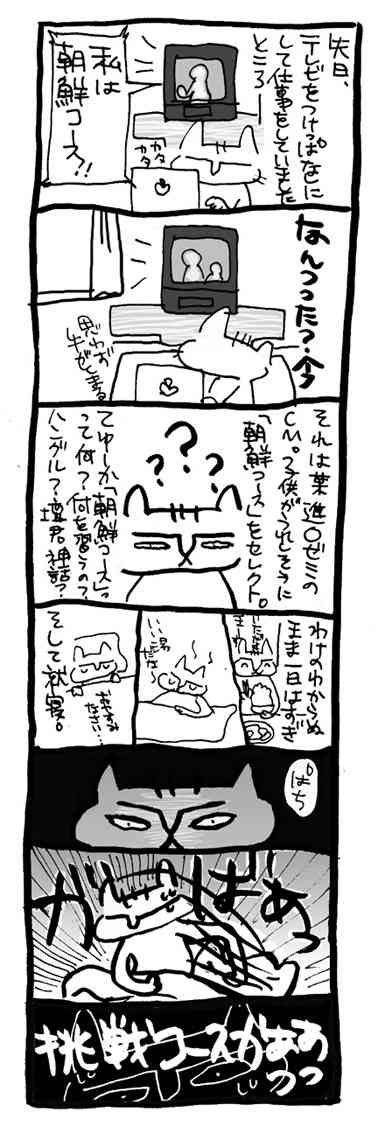 先日、
テレビをつけっぱなしに
して仕事をしていました
ところ―
私は
朝鮮コース!!
カタ
カタ
なんつった?今
思わず
手がとまる
それは葉進〇ゼミの
CM。子供がうれしそうに
「朝鮮コース」をセレクト。
???
てゆーか「朝鮮コース」っ
って何?何を習うの?
ハングル?壇君神話?
わけのわからぬ
まま一日はすぎ
いただき
ます
いい湯
だな~
おやすみ
なさい…
そして就寝。
ぱち
がばあっ
挑戦コースかああっっ